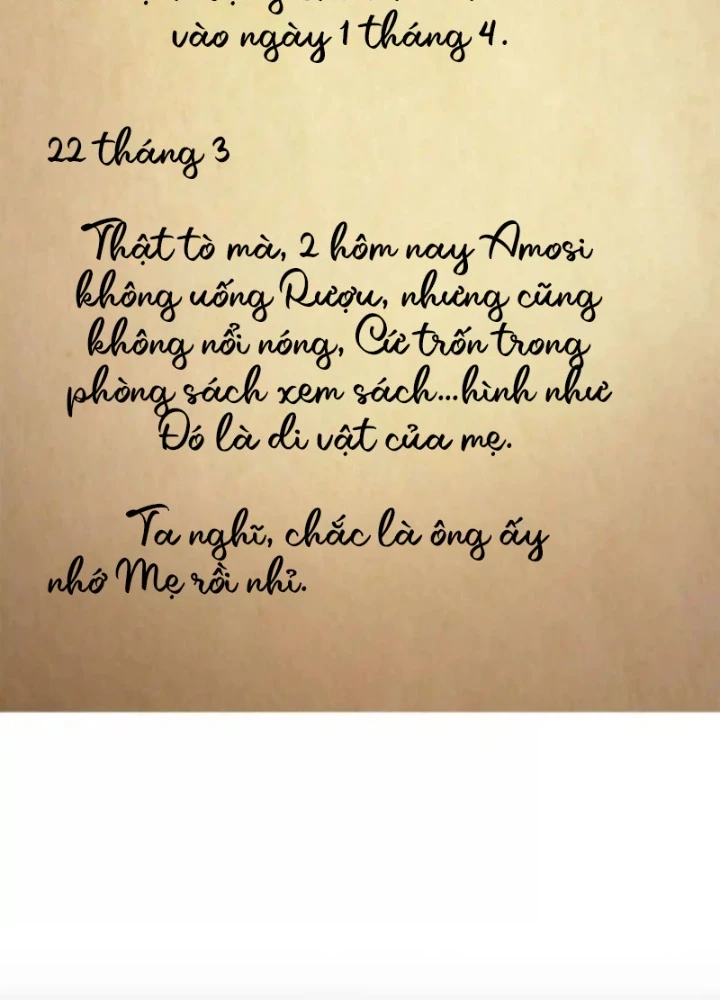 vào ngày 1 tháng 4.
22 tháng 3
Thật tò mà, 2 hôm nay Amosi
không uống Rượu, nhưng cũng
không nổi nóng, Cứ trốn trong
phòng sách xem sách...hình như
Đó là di vật của mẹ.
Ta nghĩ, chắc là ông ấy
nhớ Mẹ rồi nhỉ.